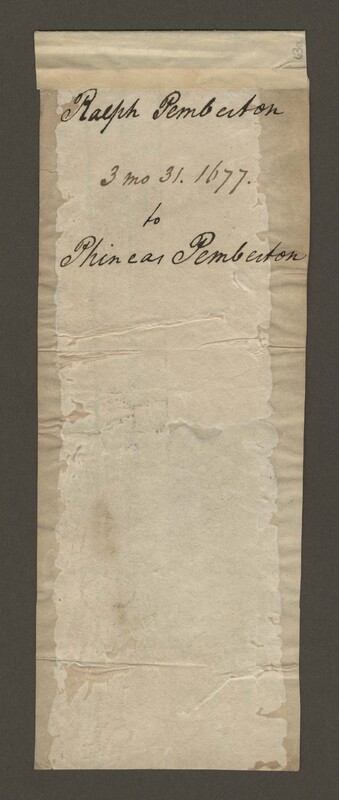 Ralph Pemberton
3 mo 31. 1677.
to
Phineas Pemberton